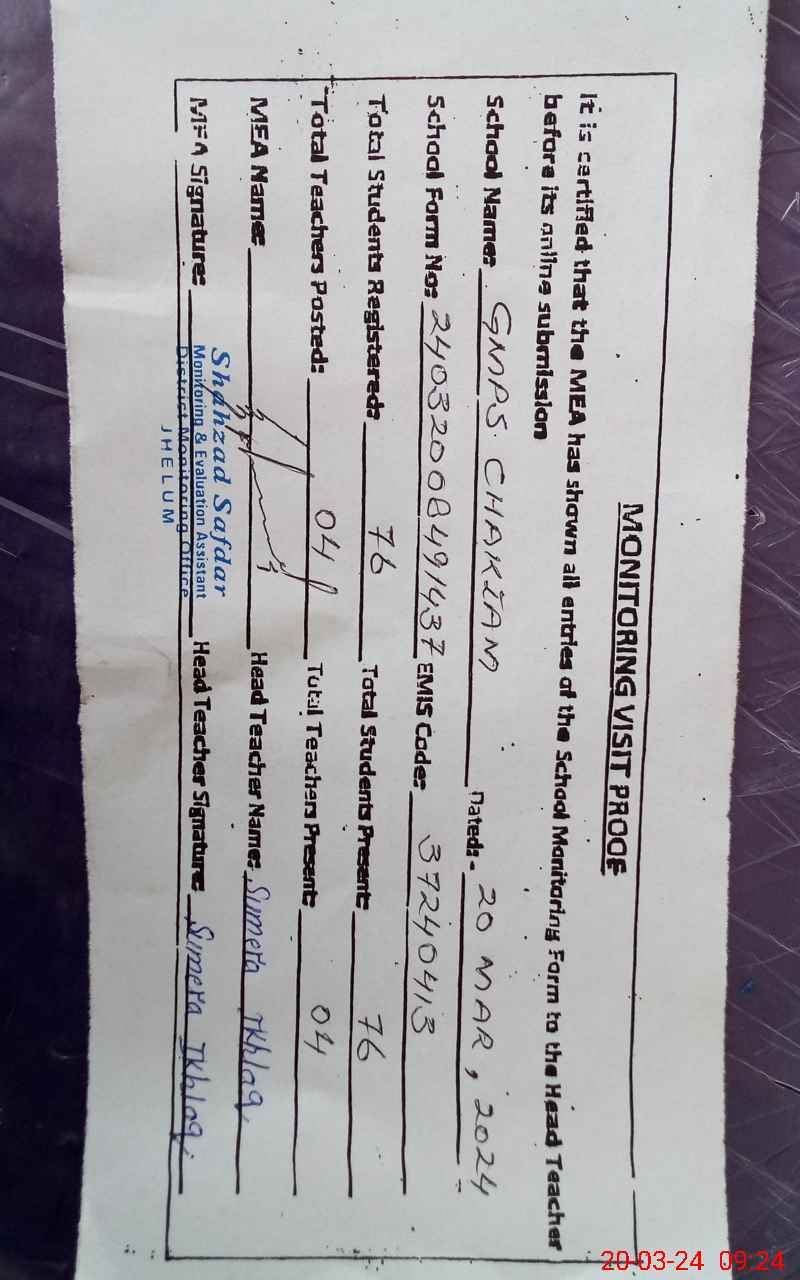 MONITORING VISIT PROOF
It is certified that the MEA has shown all entries of the School Monitoring Form to the Head Teacher
before its online submission
School Name: GMPS CHAKIAN Dated:- 20 MAR, 2024
School Form No: 24032008491437 EMIS Code: 37240413
Total Students Registered: 76 Total Students Present: 76
Total Teachers Posted: 04 Total Teachers Present: 04
MEA Name: Head Teacher Name: Sumera Ikhlaq
MEA Signature: Head Teacher Signature: Sumera Ikhlaq
Shahzad Safdar
Monitoring & Evaluation Assistant
District Monitoring Office
JHELUM
20-03-24 09:24